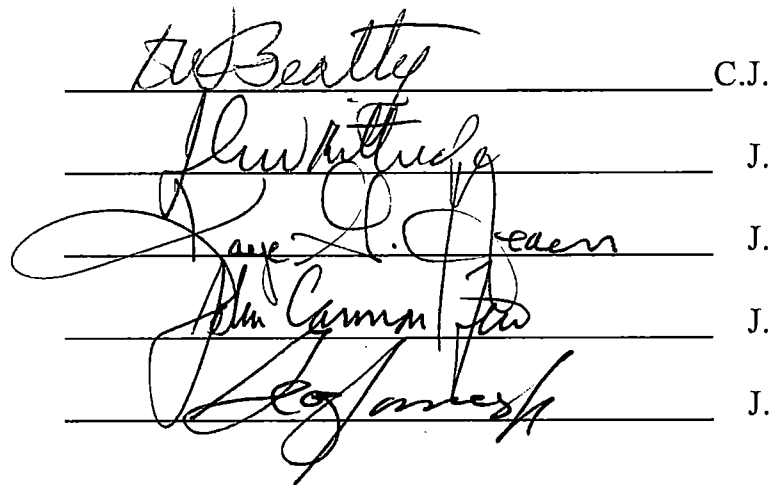 DW Beatty C.J.
Kittredge J.
Kaye G. Hearn J.
John Cannon Few J.
Geo James Jr J.